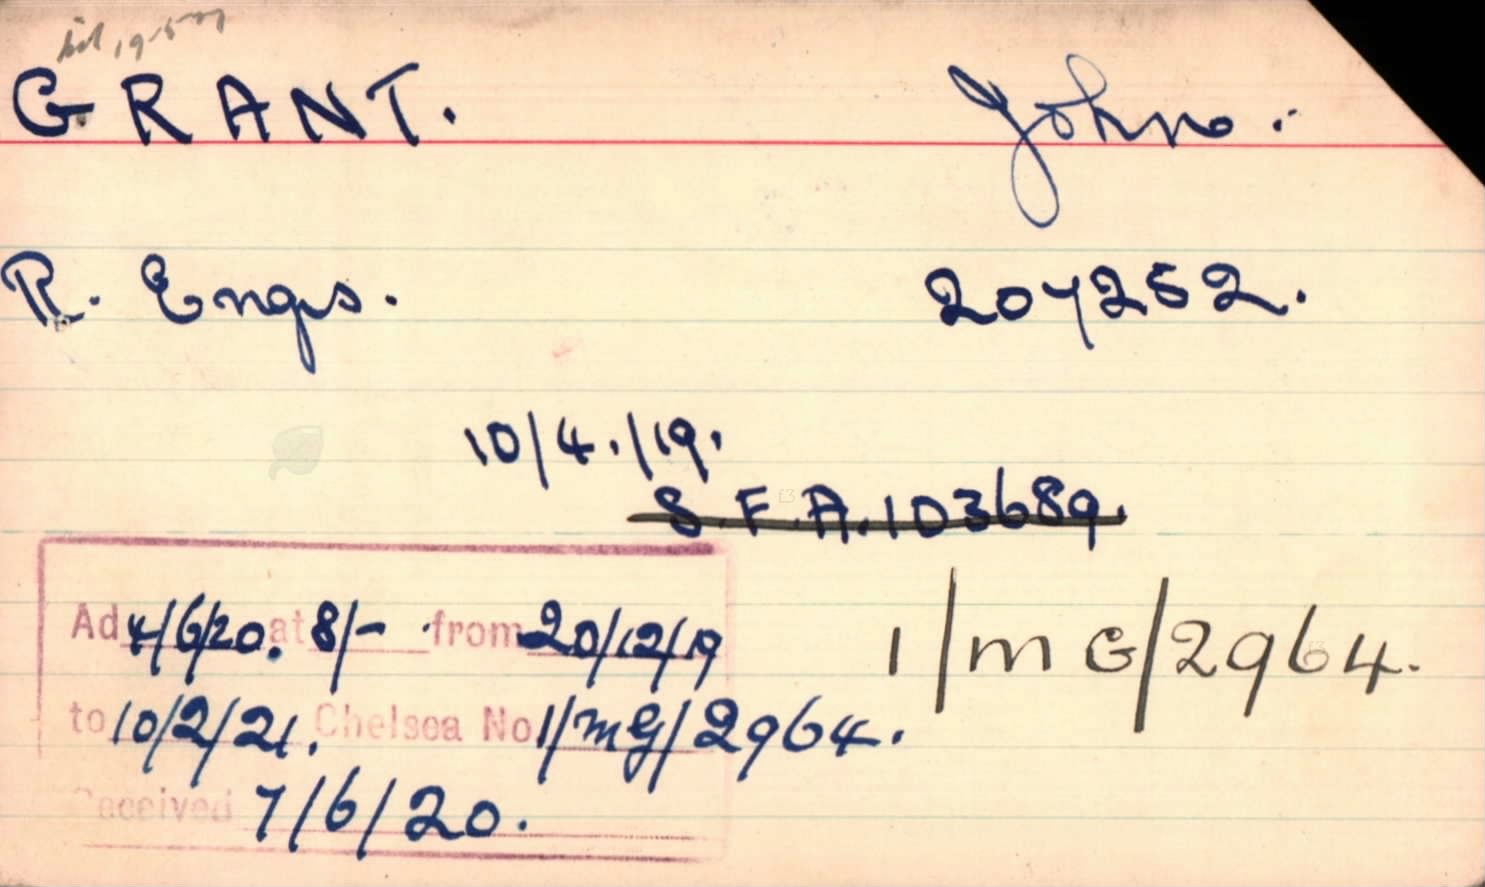 GRANT. John.
R. Engrs. 207252.
10/4./19.
S.F.A. 103689.
Ad 4/6/20. at 8/- from 20/12/19
1/MG/2964.
to 10/2/21. Chelsea No 1/MG/2964.
Received 7/6/20.